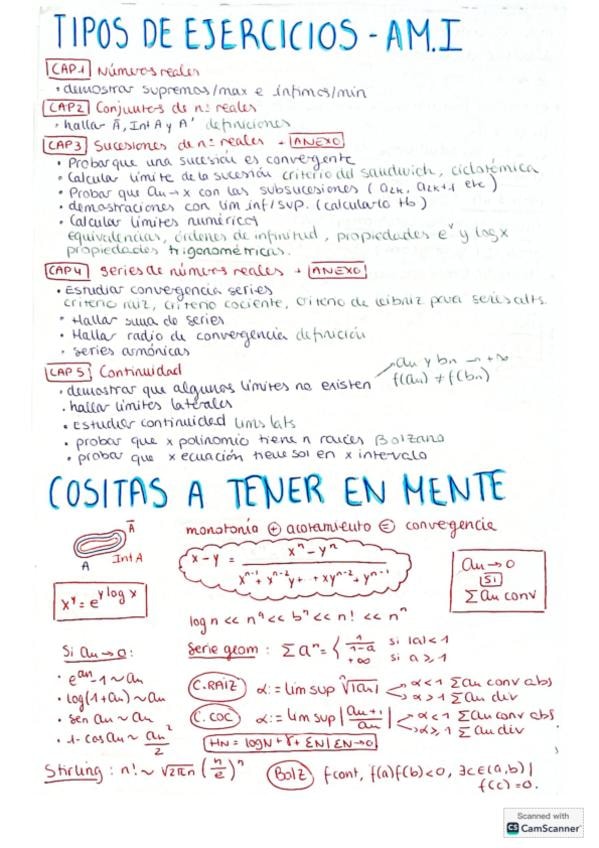 TIPOS DE EJERCICIOS - AM.I
CAP.1 Números reales
• demostrar supremos/max e ínfimos/min
CAP2 Conjuntos de nº reales
• hallar Ā, Int A y A' definiciones
CAP3 Sucesiones de nº reales + ANEXO
• Probar que una sucesión es convergente
• Calcular límite de la sucesión criterio del sandwich, ciclotómica
• Probar que an → x con las subsucesiones (a2k, a2k+1 etc)
• demostraciones con lim inf/sup. (calcularlo tb)
• Calcular límites numéricos
equivalencias, órdenes de infinitud, propiedades e^x y log x
propiedades trigonométricas.
CAP4 Series de números reales + ANEXO
• Estudiar convergencia series
criterio raíz, criterio cociente, criterio de leibniz para series alts.
• Hallar suma de series
• Hallar radio de convergencia definición
• series armónicas
CAP 5 Continuidad
• demostrar que algunos límites no existen → an y bn → +∞
f(an) ≠ f(bn)
• hallar límites laterales
• Estudiar continuidad lims lats
• probar que x polinomio tiene n raíces Bolzano
• probar que x ecuación tiene sol en x intervalo
COSITAS A TENER EN MENTE
Ā
A
Int A
monotonía ⊕ acotamiento ⊜ convergencia
x - y = (x^n - y^n) / (x^n-1 + x^n-2 y + ··· + xy^n-2 + y^n-1)
an → 0
SI
Σ an conv
x^y = e^y log x
log n << n^a << b^n << n! << n^n
Serie geom : Σ a^n = { 1/(1-a) si |a| < 1
+∞ si a ≥ 1
Si an → a:
• e^an - 1 ~ an
• log(1+an) ~ an
• sen an ~ an
• 1 - cos an ~ an²/2
C. RAIZ α := lim sup ⁿ√|an| → α < 1 Σ an conv abs
→ α > 1 Σ an div
C. COC α := lim sup |an+1/an| → α < 1 Σ an conv abs
→ α ≥ 1 Σ an div
HN = log N + γ + εN | εN → 0
Stirling : n! ~ √2πn (n/e)^n
Bolz f cont, f(a)f(b) < 0, ∃c ∈ (a,b) |
f(c) = 0.
Scanned with
CS CamScanner